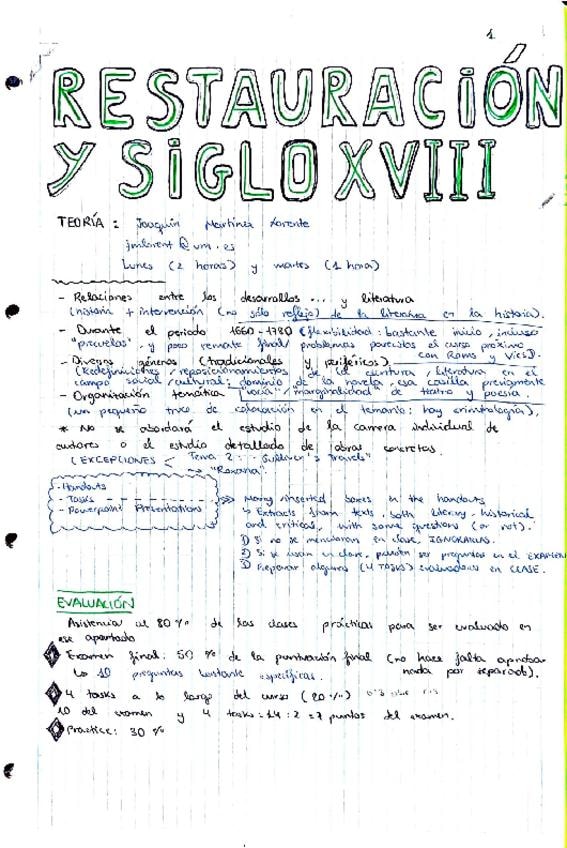 1
RESTAURACIÓN
Y SIGLO XVIII
TEORÍA: Joaquín Martínez Lorente
jmlorent@um.es
Lunes (2 horas) y martes (1 hora)
- Relaciones entre los desarrollos ... y literatura
(historia + intervención (no sólo reflejo) de la literatura en la historia).
- Durante el periodo 1660-1780 (flexibilidad: bastante inicio, incluso
"precuelas", y poco remate final/ problemas parecidos el curso próximo
con Roms y Vics).
- Diversos géneros (tradicionales y periféricos)
(redefiniciones / reposicionamientos de la escritura / literatura en el
campo social / cultural: dominio de la novela, esa casilla previamente
- Organización temática "vacía" / "marginalidad" de teatro y poesía.
(un pequeño truco de colocación en el temario: hay cronología),
* No se abordará el estudio de la carrera individual de
autores o el estudio detallado de obras concretas.
(EXCEPCIONES < Tema 2: "Gulliver's Travels"
→ "Roxana"
- Handouts
- Tasks
- Powerpoint Presentations
Many inserted boxes in the handouts
↳ Extracts from texts, both literary, historical
and critical, with some questions (or not).
1) Si no se mencionan en clase, IGNORARLAS.
2) Si se usan en clase, pueden ser preguntas en el EXAMEN
3) Preparar algunos (4 TASKS) evaluados en CLASE.
EVALUACIÓN
Asistencia al 80% de las clases prácticas para ser evaluado en
ese apartado
Examen final: 50 % de la puntuación final (no hace falta aprobar
nada por separado).
↳ 10 preguntas bastante específicas.
4 tasks a lo largo del curso (20%)
10 del examen y 4 tasks = 14 : 2 = 7 puntos del examen.
Practice: 30 %